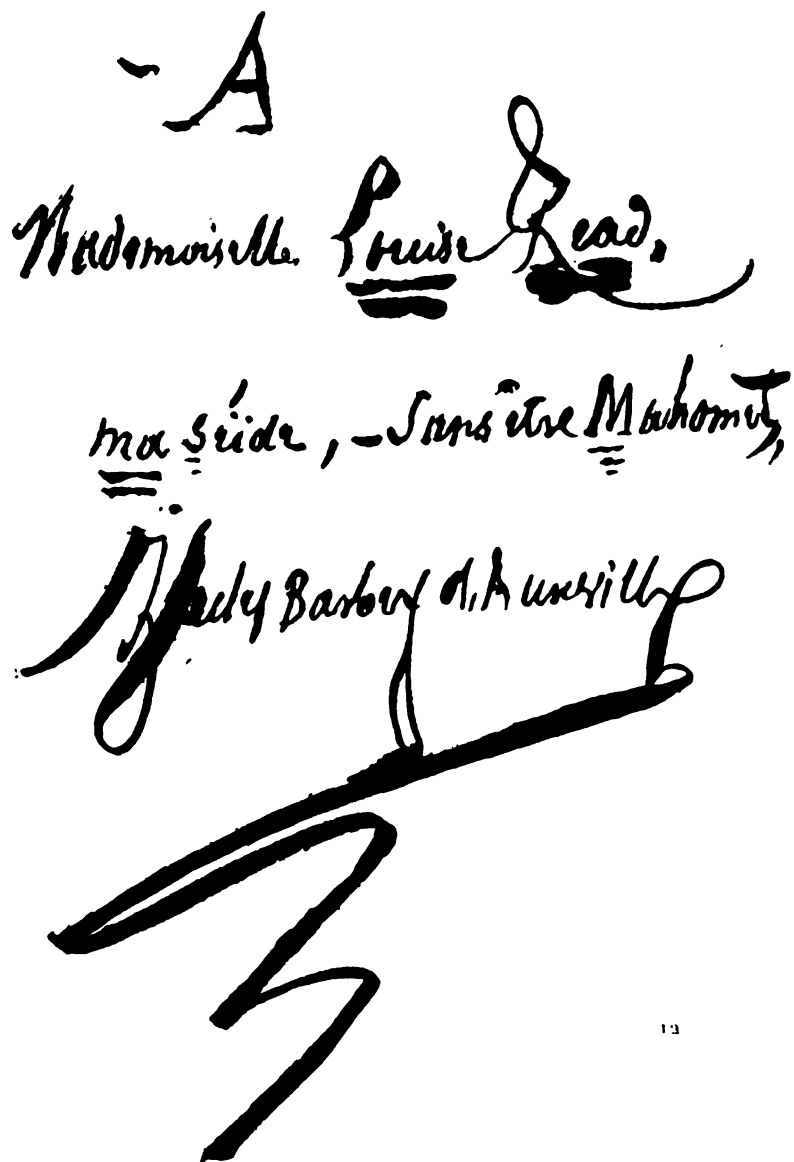 - A
Mademoiselle Louise Read,
ma séide, - Sans être Mahomet,
Jules Barbey d'Aurevilly
13